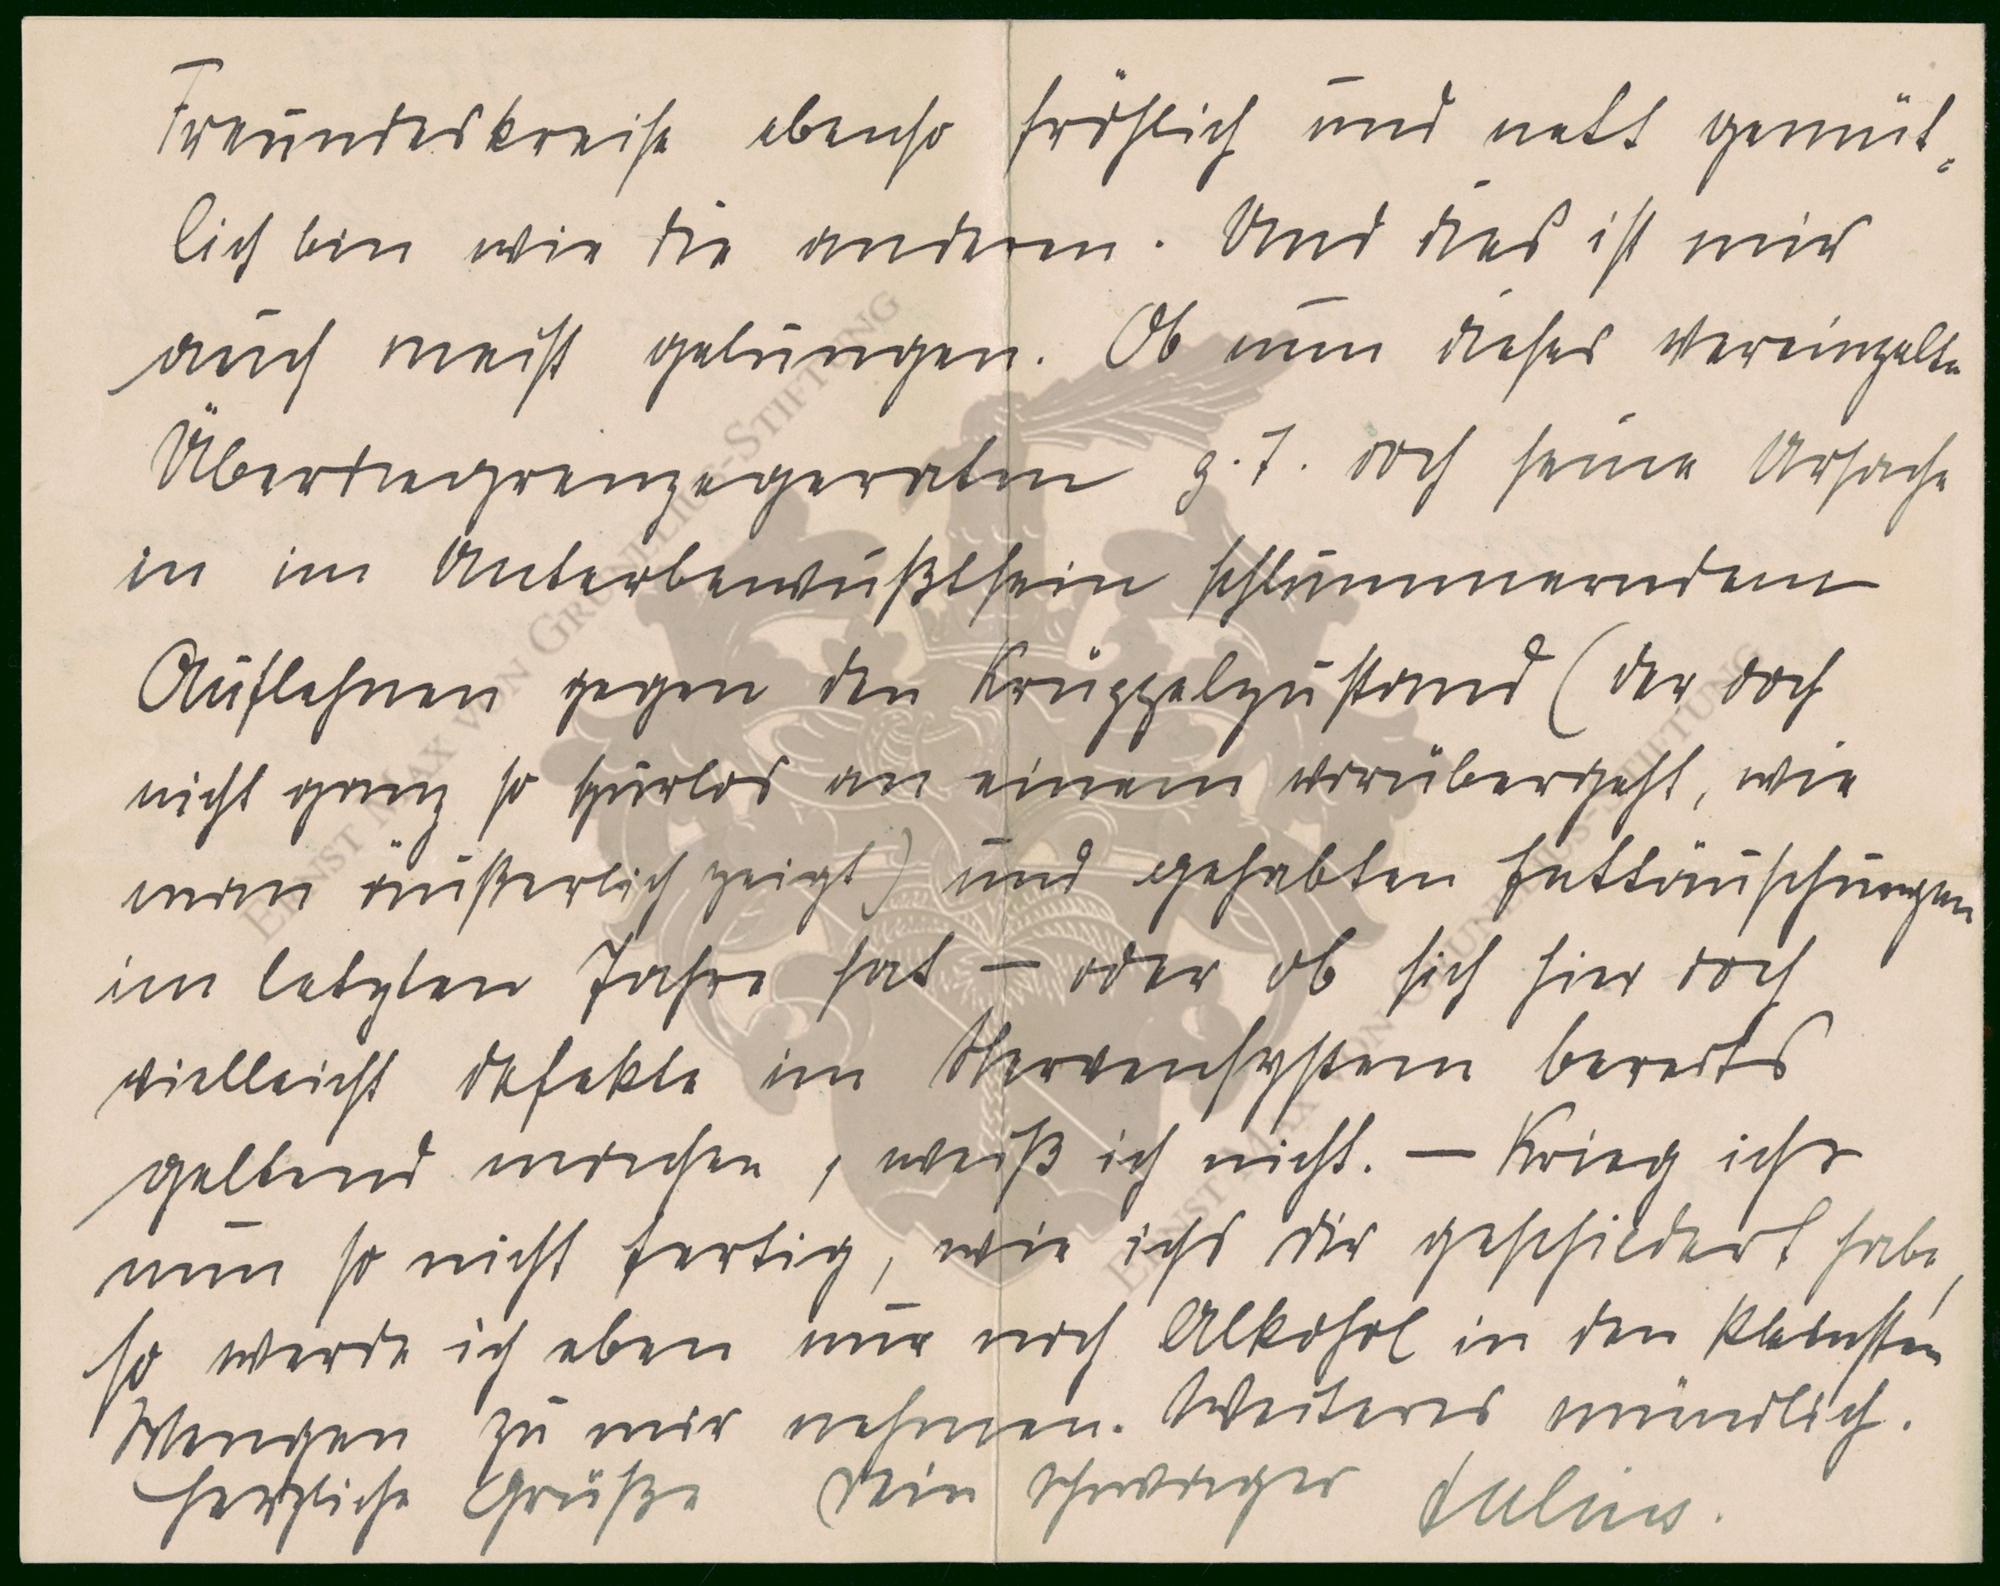 Freundeskreise ebenso fröhlich und nett gemüt-
lich bin wie die anderen. Und dies ist mir
auch meist gelungen. Ob nun dieses vereinzelte
Überdiegrenzegeraten z. T. doch seine Ursache
in im Unterbewußtsein schlummerndem
Auflehnen gegen den Krüppelzustand (der doch
nicht ganz so spurlos an einem vorübergeht, wie
man äußerlich zeigt) und gehabten Enttäuschungen
im letzten Jahre hat – oder ob sich hier doch
vielleicht defekte im Nervensystem bereits
geltend machen, weiß ich nicht. – Krieg ichs
nun so nicht fertig, wie ichs dir geschildert habe,
so werde ich eben nur noch Alkohol in den kleinsten
Mengen zu mir nehmen. Weiteres mündlich.
Herzliche Grüße Dein Schwager Julius.
ERNST MAX VON GRUNELIUS-STIFTUNG
ERNST MAX VON GRUNELIUS-STIFTUNG